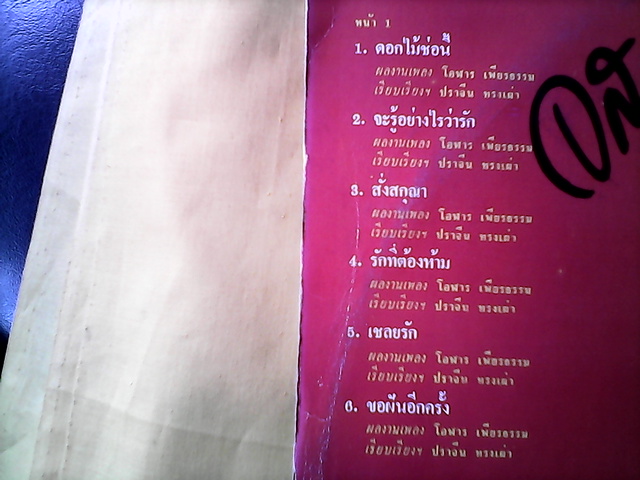 หน้า 1
1. ดอกไม้ช่อนี้
ผลงานเพลง โอฬาร เพียรธรรม
เรียบเรียงฯ ปราจีน ทรงเผ่า
2. จะรู้อย่างไรว่ารัก
ผลงานเพลง โอฬาร เพียรธรรม
เรียบเรียงฯ ปราจีน ทรงเผ่า
3. สั่งสกุณา
ผลงานเพลง โอฬาร เพียรธรรม
เรียบเรียงฯ ปราจีน ทรงเผ่า
4. รักที่ต้องห้าม
ผลงานเพลง โอฬาร เพียรธรรม
เรียบเรียงฯ ปราจีน ทรงเผ่า
5. เชลยรัก
ผลงานเพลง โอฬาร เพียรธรรม
เรียบเรียงฯ ปราจีน ทรงเผ่า
6. ขอฝันอีกครั้ง
ผลงานเพลง โอฬาร เพียรธรรม
เรียบเรียงฯ ปราจีน ทรงเผ่า